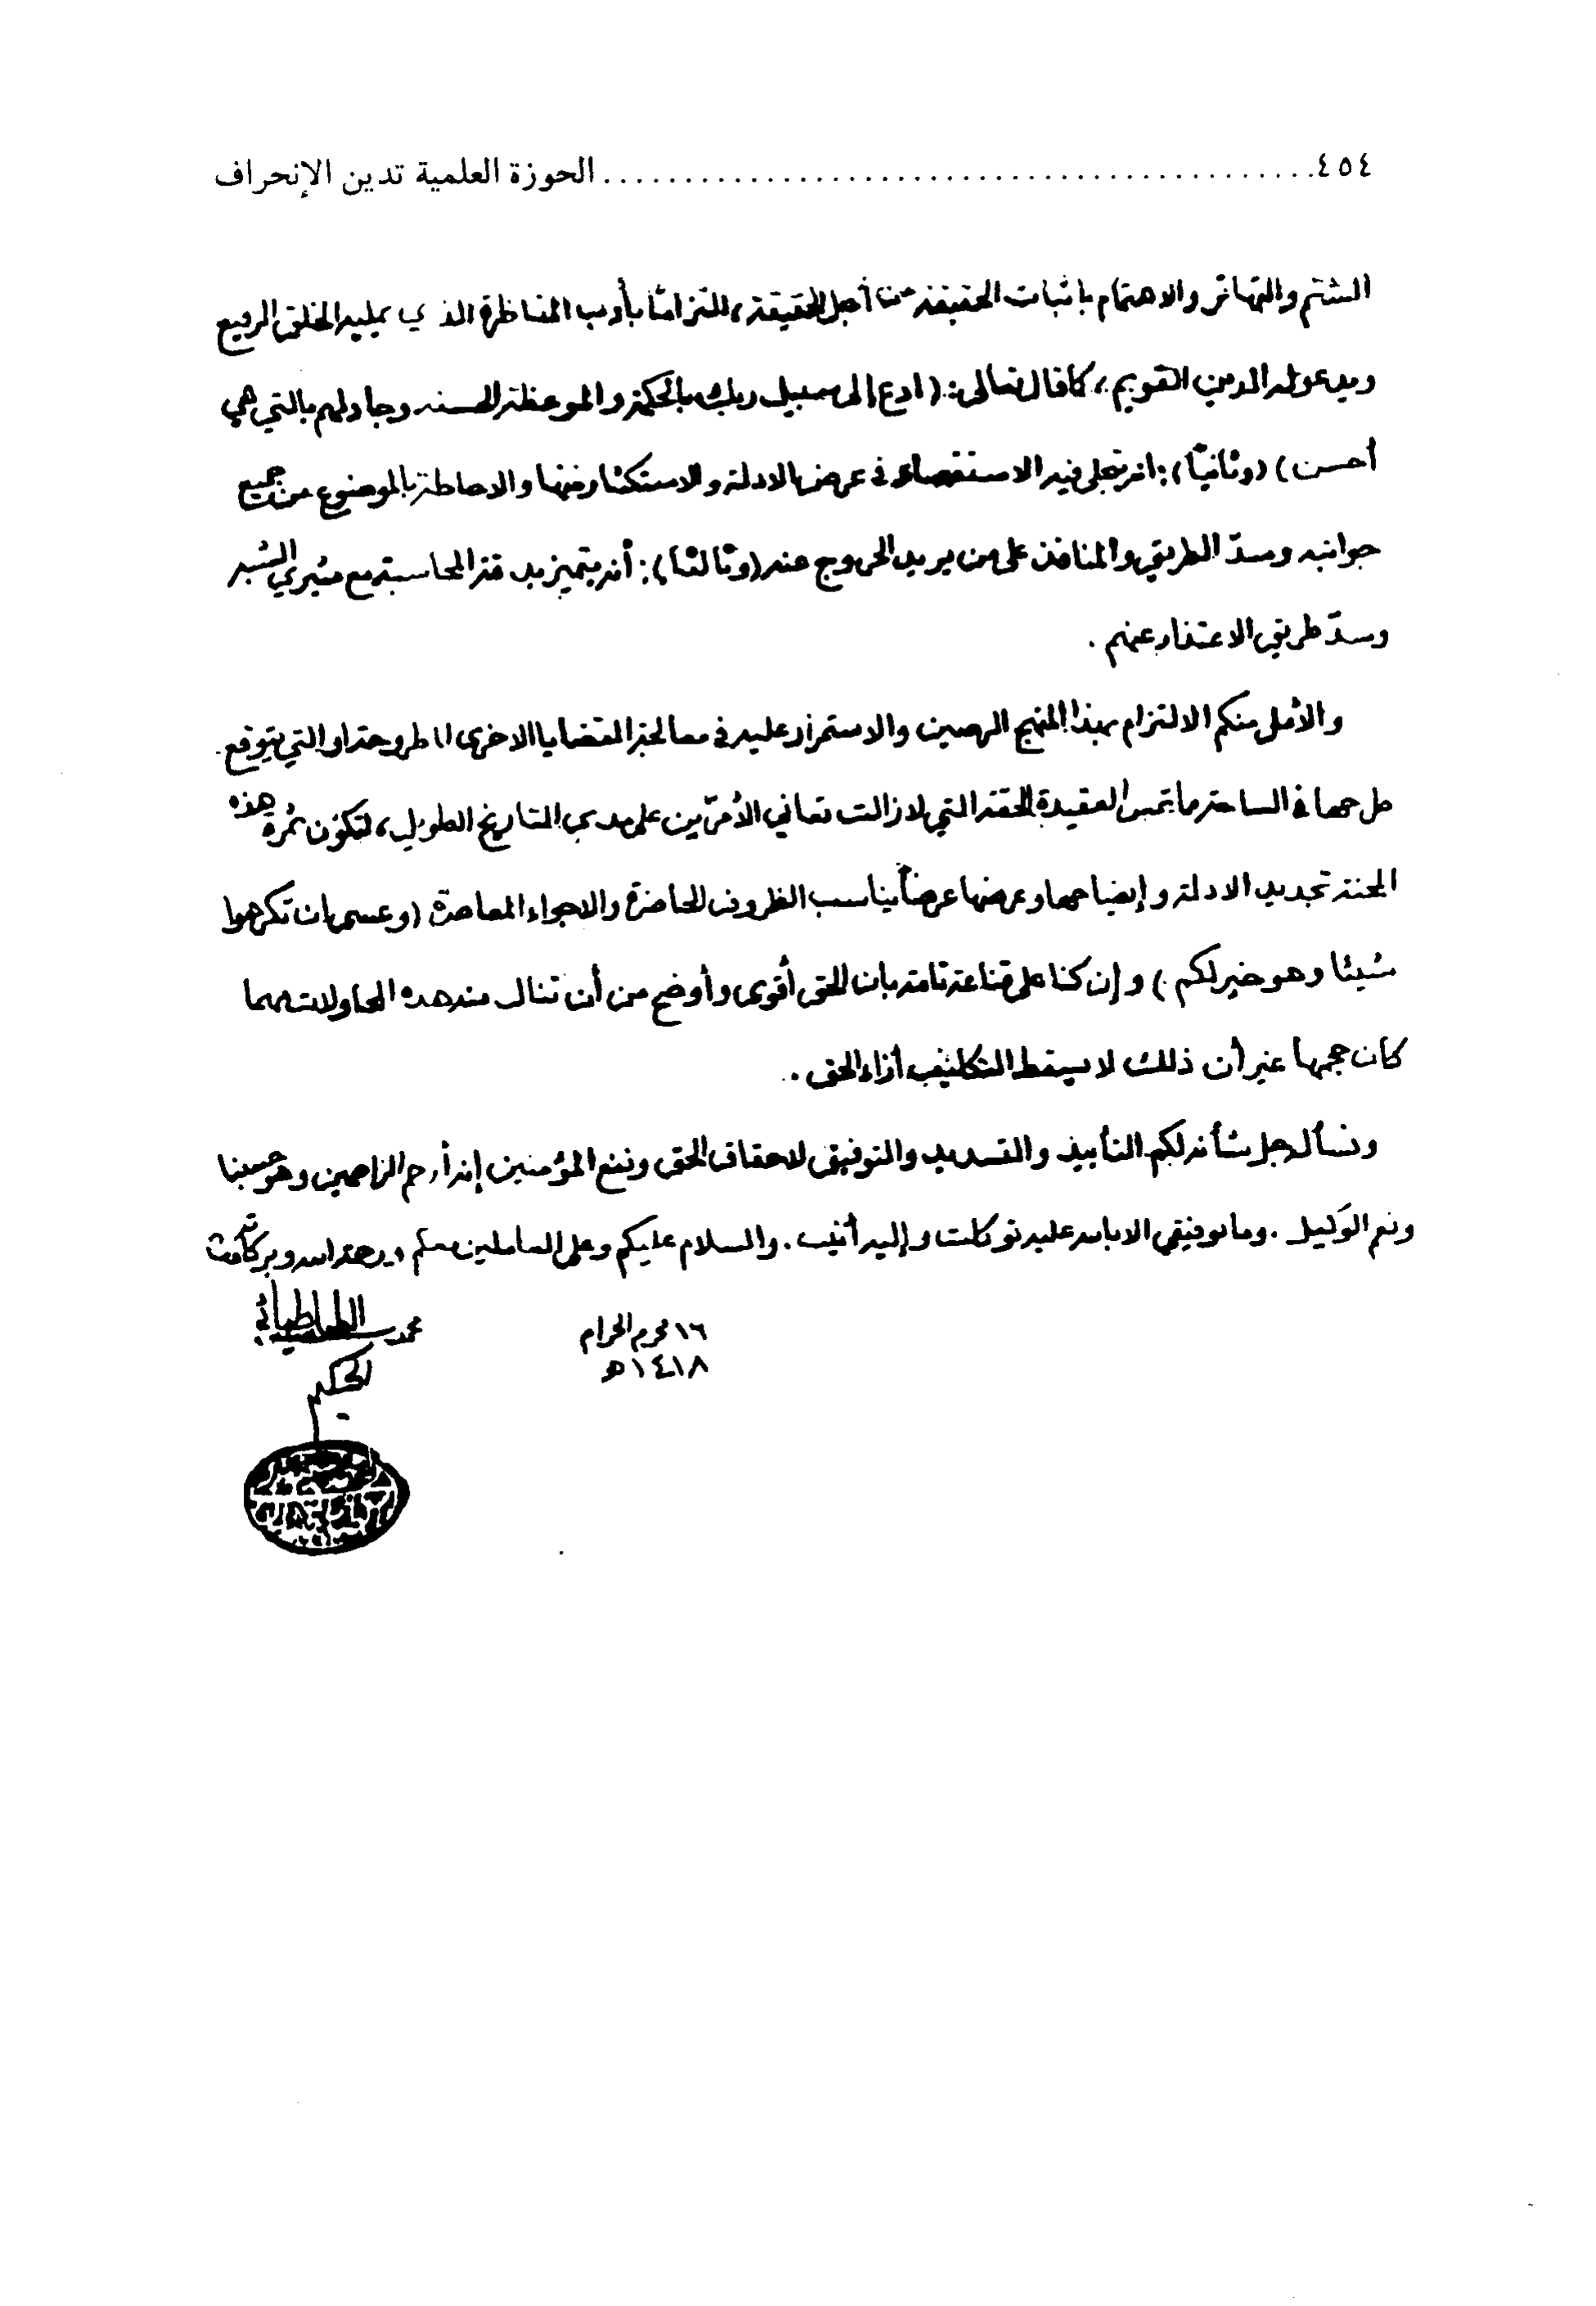 ٤٥٤............................................الحوزة العلمية تدين الإنحراف
الشتم والتهاتر والاهتمام باثبات الحقيقة من أجل الحقيقة، التزاماً بأدب المناظرة الذي يمليه الخلق الرفيع
ويدعو له الدين القويم، كما قال تعالى: (ادع إلى سبيل ربك بالحكمة والموعظة الحسنه وجادلهم بالتي هي
أحسن) (وثانياً): انه تجلى فيه الاستقصاء في عرض الادلة والاستكثار منها والاحاطة بالموضوع من جميع
جوانبه وسدّ الطريق والمنافذ على من يريد الخروج عنه (وثالثاً): أنه يتميز بدقة المحاسبة مع مثيري الشبه
وسدّ طريق الاعتذار عنهم.
والأمل منكم الالتزام بهذا المنهج الرصين والاستمرار عليه في معالجة القضايا الاخرى المطروحة او التي يتوقع
طرحها في الساحة مما تمس العقيدة الحقة التي لا زالت تعاني الأمرّين على مدى التاريخ الطويل، لتكون ثمرة هذه
المحنة تجديد الادلة وإيضاحها وعرضها عرضاً يناسب الظروف الحاضرة والاجواء المعاصرة (وعسى ان تكرهوا
شيئا وهو خير لكم) وإن كنا على قناعة تامة بان الحق أقوى وأوضح من أن تنال منه هذه المحاولات مهما
كان حجمها غير أن ذلك لا يسقط التكليف أزاء الحق.
ونسأله جل شأنه لكم التأييد والتسديد والتوفيق لاحقاق الحق ونفع المؤمنين إنه أرحم الراحمين وهو حسبنا
ونعم الوكيل. وما توفيقي الا بالله عليه توكلت وإليه أنيب. والسلام عليكم وعلى العاملين معكم ورحمة الله وبركاته
١٦ محرم الحرام
١٤١٨ه
محمد سعيد الطباطبائي
الحكيم